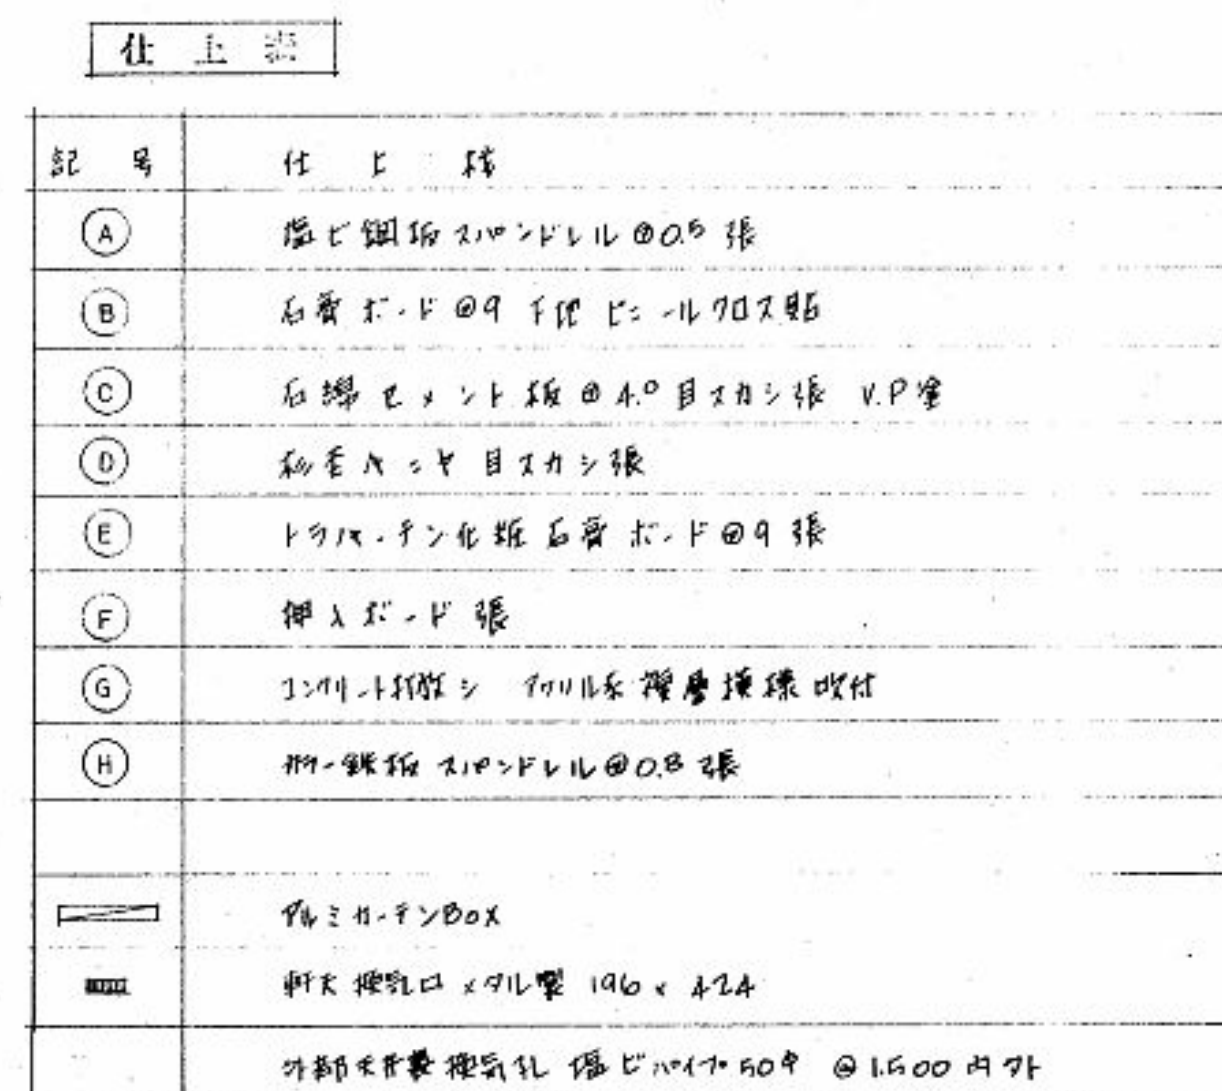 仕上表
記号 仕上材
A 塩ビ鋼板スパンドレル⑦0.5張
B 石膏ボード⑦9 下地ビニールクロス貼
C 石綿セメント板⑦4.0目スカシ張 V.P塗
D ベニヤ目スカシ張
E トラバーチン化粧石膏ボード⑦9張
F 押入ボード張
G コンクリート打放シ アクリル系 模様吹付
H カラー鉄板スパンドレル⑦0.8張
アルミカーテンBOX
軒天換気口メタル製 196×424
外部天井裏換気孔 塩ビパイプ50φ @1.500内外